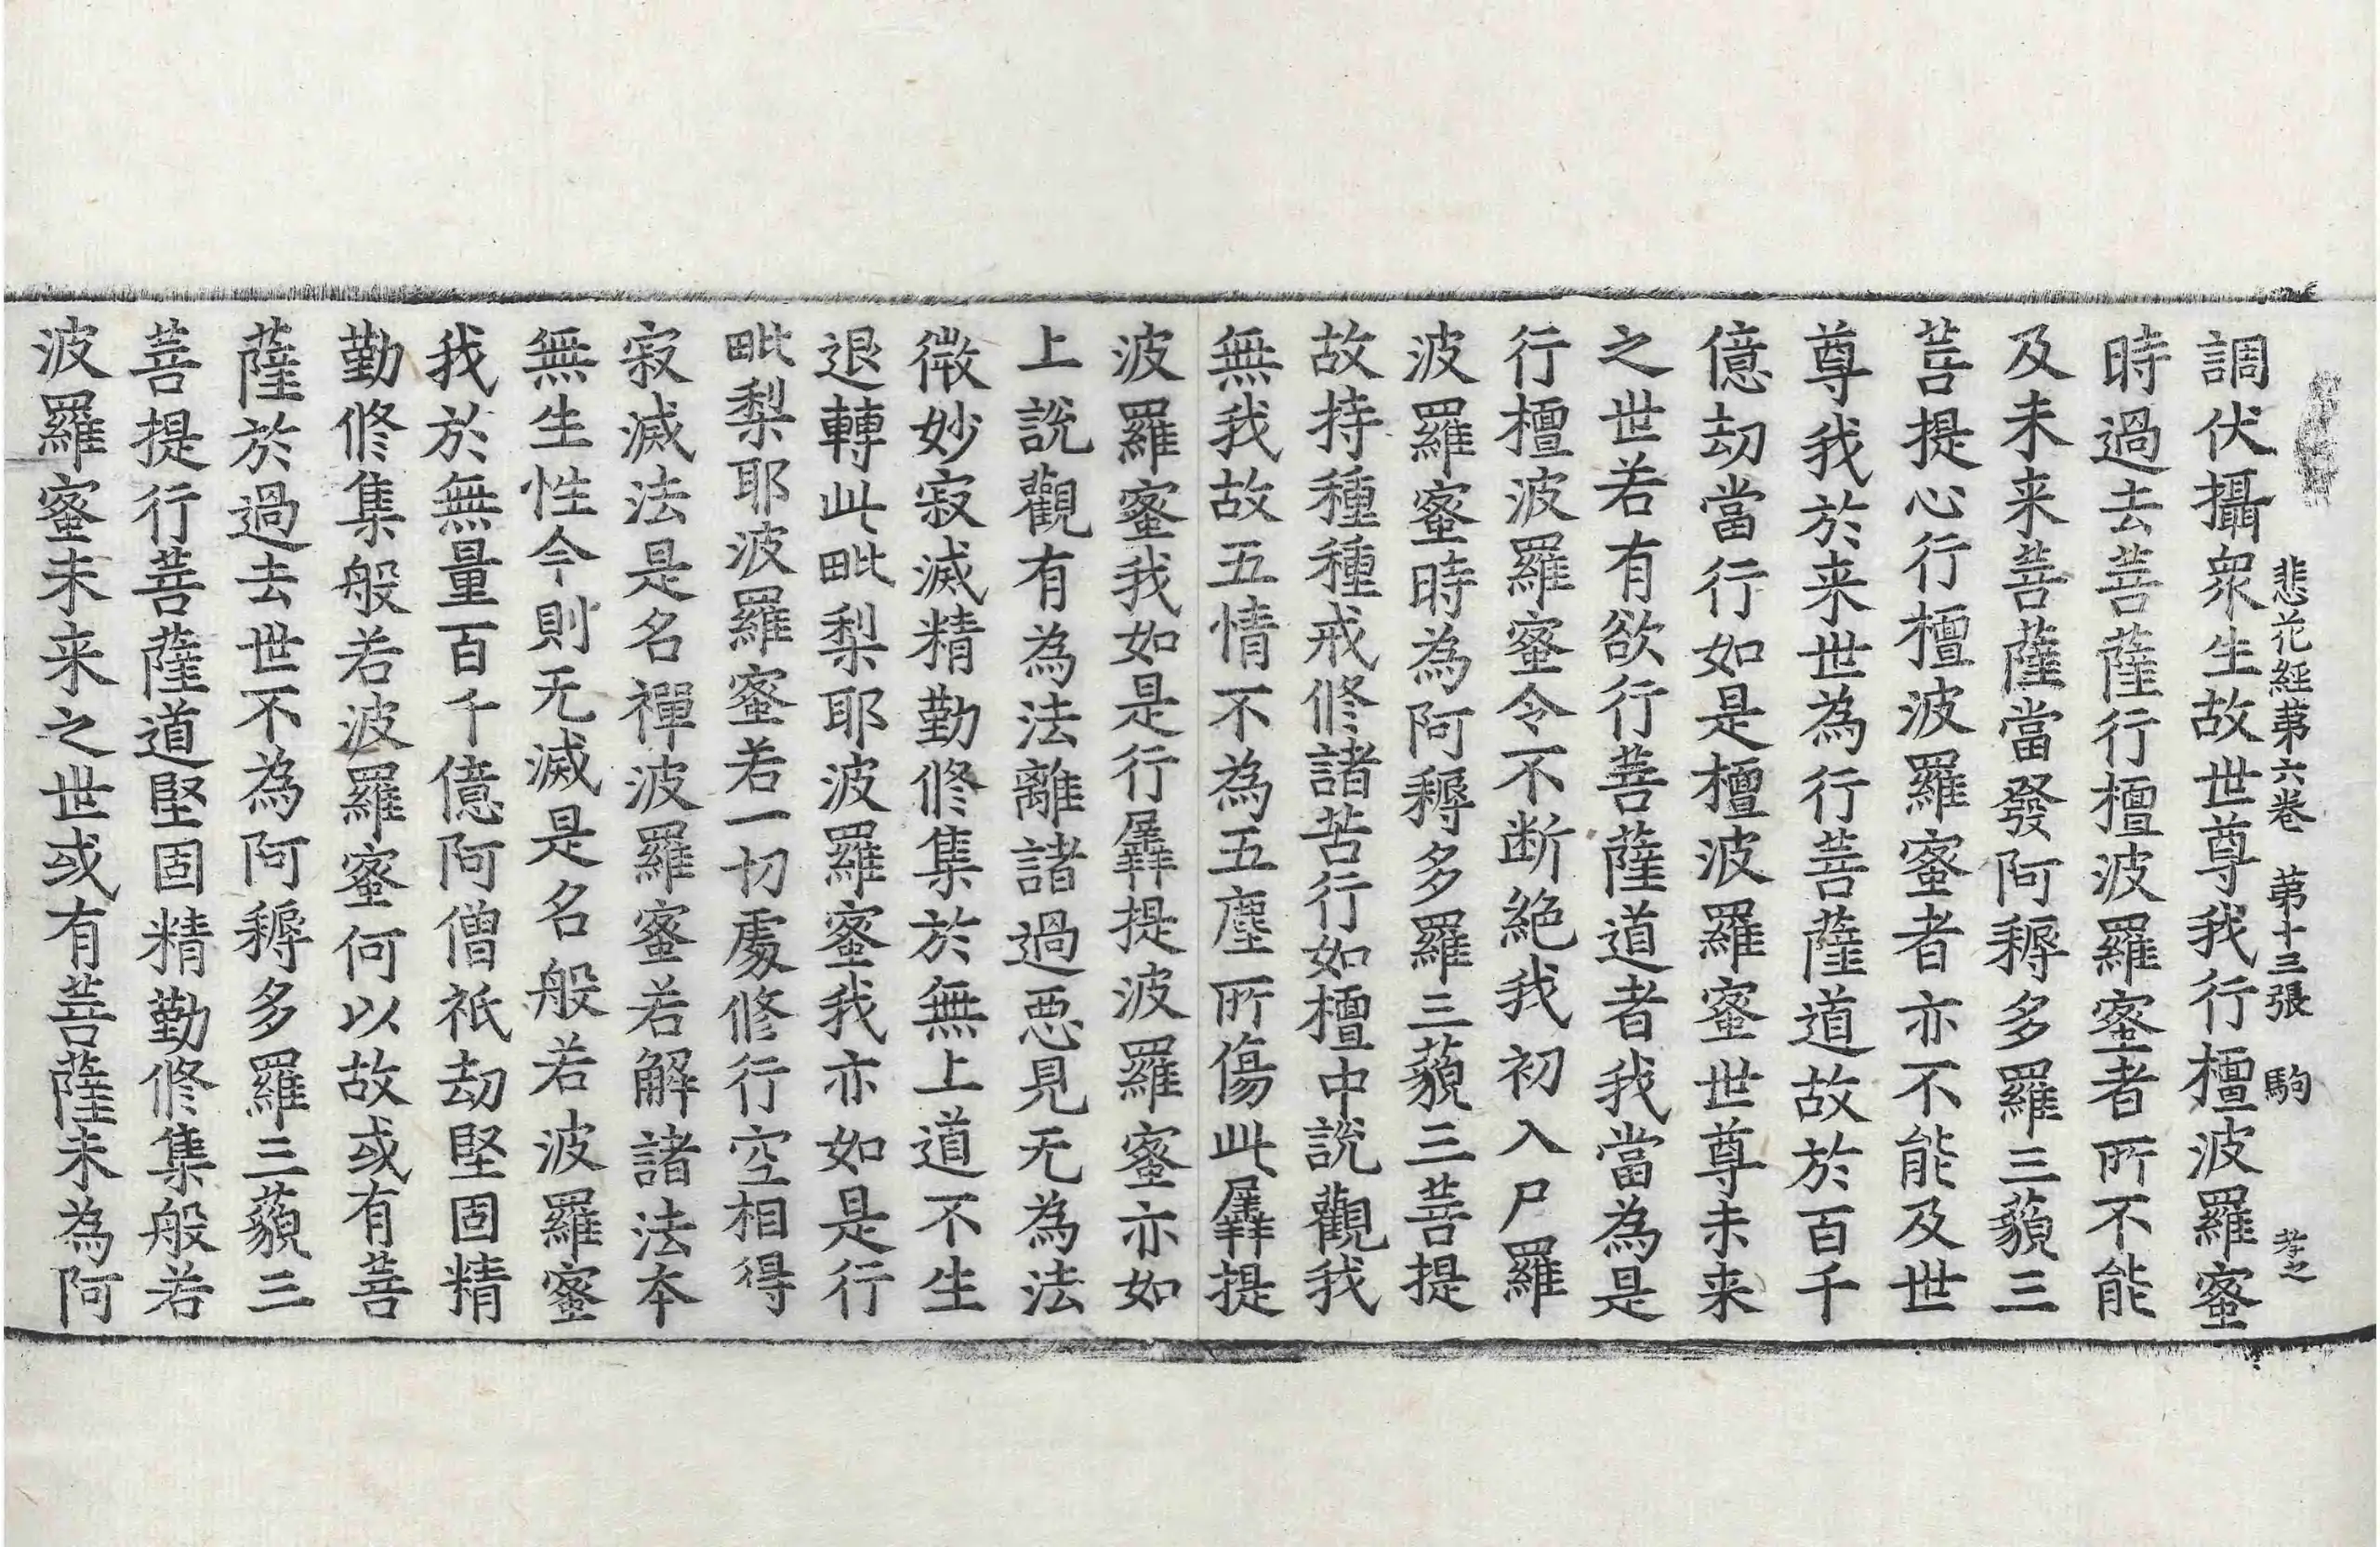 悲花経苐六巻　苐十三張　駒　孝之
調伏攝衆生故世尊我行檀波羅蜜
時過去菩薩行檀波羅蜜者所不能
及未来菩薩當發阿耨多羅三藐三
菩提心行檀波羅蜜者亦不能及世
尊我於来世為行菩薩道故於百千
億劫當行如是檀波羅蜜世尊未来
之世若有欲行菩薩道者我當為是
行檀波羅蜜令不断絶我初入尸羅
波羅蜜時為阿耨多羅三藐三菩提
故持種種戒修諸苦行如檀中說觀我
無我故五情不為五塵所傷此羼提
波羅蜜我如是行羼提波羅蜜亦如
上說觀有為法離諸過惡見无為法
微妙寂滅精勤修集於無上道不生
退轉此毗梨耶波羅蜜我亦如是行
毗梨耶波羅蜜若一切處修行空相得
寂滅法是名禪波羅蜜若解諸法本
無生性今則无滅是名般若波羅蜜
我於無量百千億阿僧祇劫堅固精
勤修集般若波羅蜜何以故或有菩
薩於過去世不為阿耨多羅三藐三
菩提行菩薩道堅固精勤修集般若
波羅蜜未来之世或有菩薩未為阿